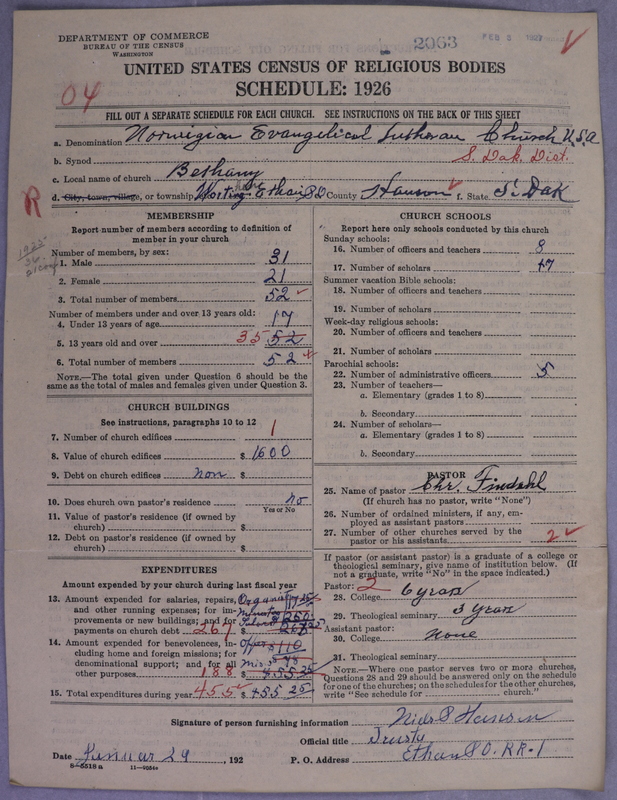 DEPARTMENT OF COMMERCE
BUREAU OF THE CENSUS
WASHINGTON
2063
FEB 5 1927
UNITED STATES CENSUS OF RELIGIOUS BODIES
SCHEDULE: 1926
04
FILL OUT A SEPARATE SCHEDULE FOR EACH CHURCH. SEE INSTRUCTIONS ON THE BACK OF THIS SHEET
a. Denomination Norwegian Evangelical Lutheran Church U.S.A
b. Synod S. Dak. Dist.
c. Local name of church Bethany
d. City, town, village, or township Ethan SD County Hanson f. State S. Dak
R
MEMBERSHIP
Report number of members according to definition of member in your church
Number of members, by sex:
1. Male 31
2. Female 21
3. Total number of members 52
Number of members under and over 13 years old:
4. Under 13 years of age 17
5. 13 years old and over 35 52
6. Total number of members 52
NOTE.—The total given under Question 6 should be the same as the total of males and females given under Question 3.
CHURCH BUILDINGS
See instructions, paragraphs 10 to 12
7. Number of church edifices 1
8. Value of church edifices $ 1600
9. Debt on church edifices non $
10. Does church own pastor's residence no
Yes or No
11. Value of pastor's residence (if owned by church) $
12. Debt on pastor's residence (if owned by church) $
EXPENDITURES
Amount expended by your church during last fiscal year
13. Amount expended for salaries, repairs, and other running expenses; for improvements or new buildings; and for payments on church debt 267 $
14. Amount expended for benevolences, including home and foreign missions; for denominational support; and for all other purposes 188 $ 455 25
15. Total expenditures during year 455 $ 455 25
CHURCH SCHOOLS
Report here only schools conducted by this church
Sunday schools:
16. Number of officers and teachers 8
17. Number of scholars 47
Summer vacation Bible schools:
18. Number of officers and teachers
19. Number of scholars
Week-day religious schools:
20. Number of officers and teachers
21. Number of scholars
Parochial schools:
22. Number of administrative officers 5
23. Number of teachers—
a. Elementary (grades 1 to 8)
b. Secondary
24. Number of scholars—
a. Elementary (grades 1 to 8)
b. Secondary
PASTOR
25. Name of pastor Chr. Findahl
(If church has no pastor, write "None")
26. Number of ordained ministers, if any, employed as assistant pastors
27. Number of other churches served by the pastor or his assistants 2
If pastor (or assistant pastor) is a graduate of a college or theological seminary, give name of institution below. (If not a graduate, write "No" in the space indicated.)
Pastor: 2
28. College 6 years
29. Theological seminary 3 years
Assistant pastor:
30. College none
31. Theological seminary
NOTE.—Where one pastor serves two or more churches, Questions 28 and 29 should be answered only on the schedule for one of the churches; on the schedules for the other churches, write "See schedule for church."
Signature of person furnishing information Niels P Hanson
Official title Trusty
Date Januar 29, 192 P. O. Address Ethan S D. RR-1
8—5518 a 11—9354